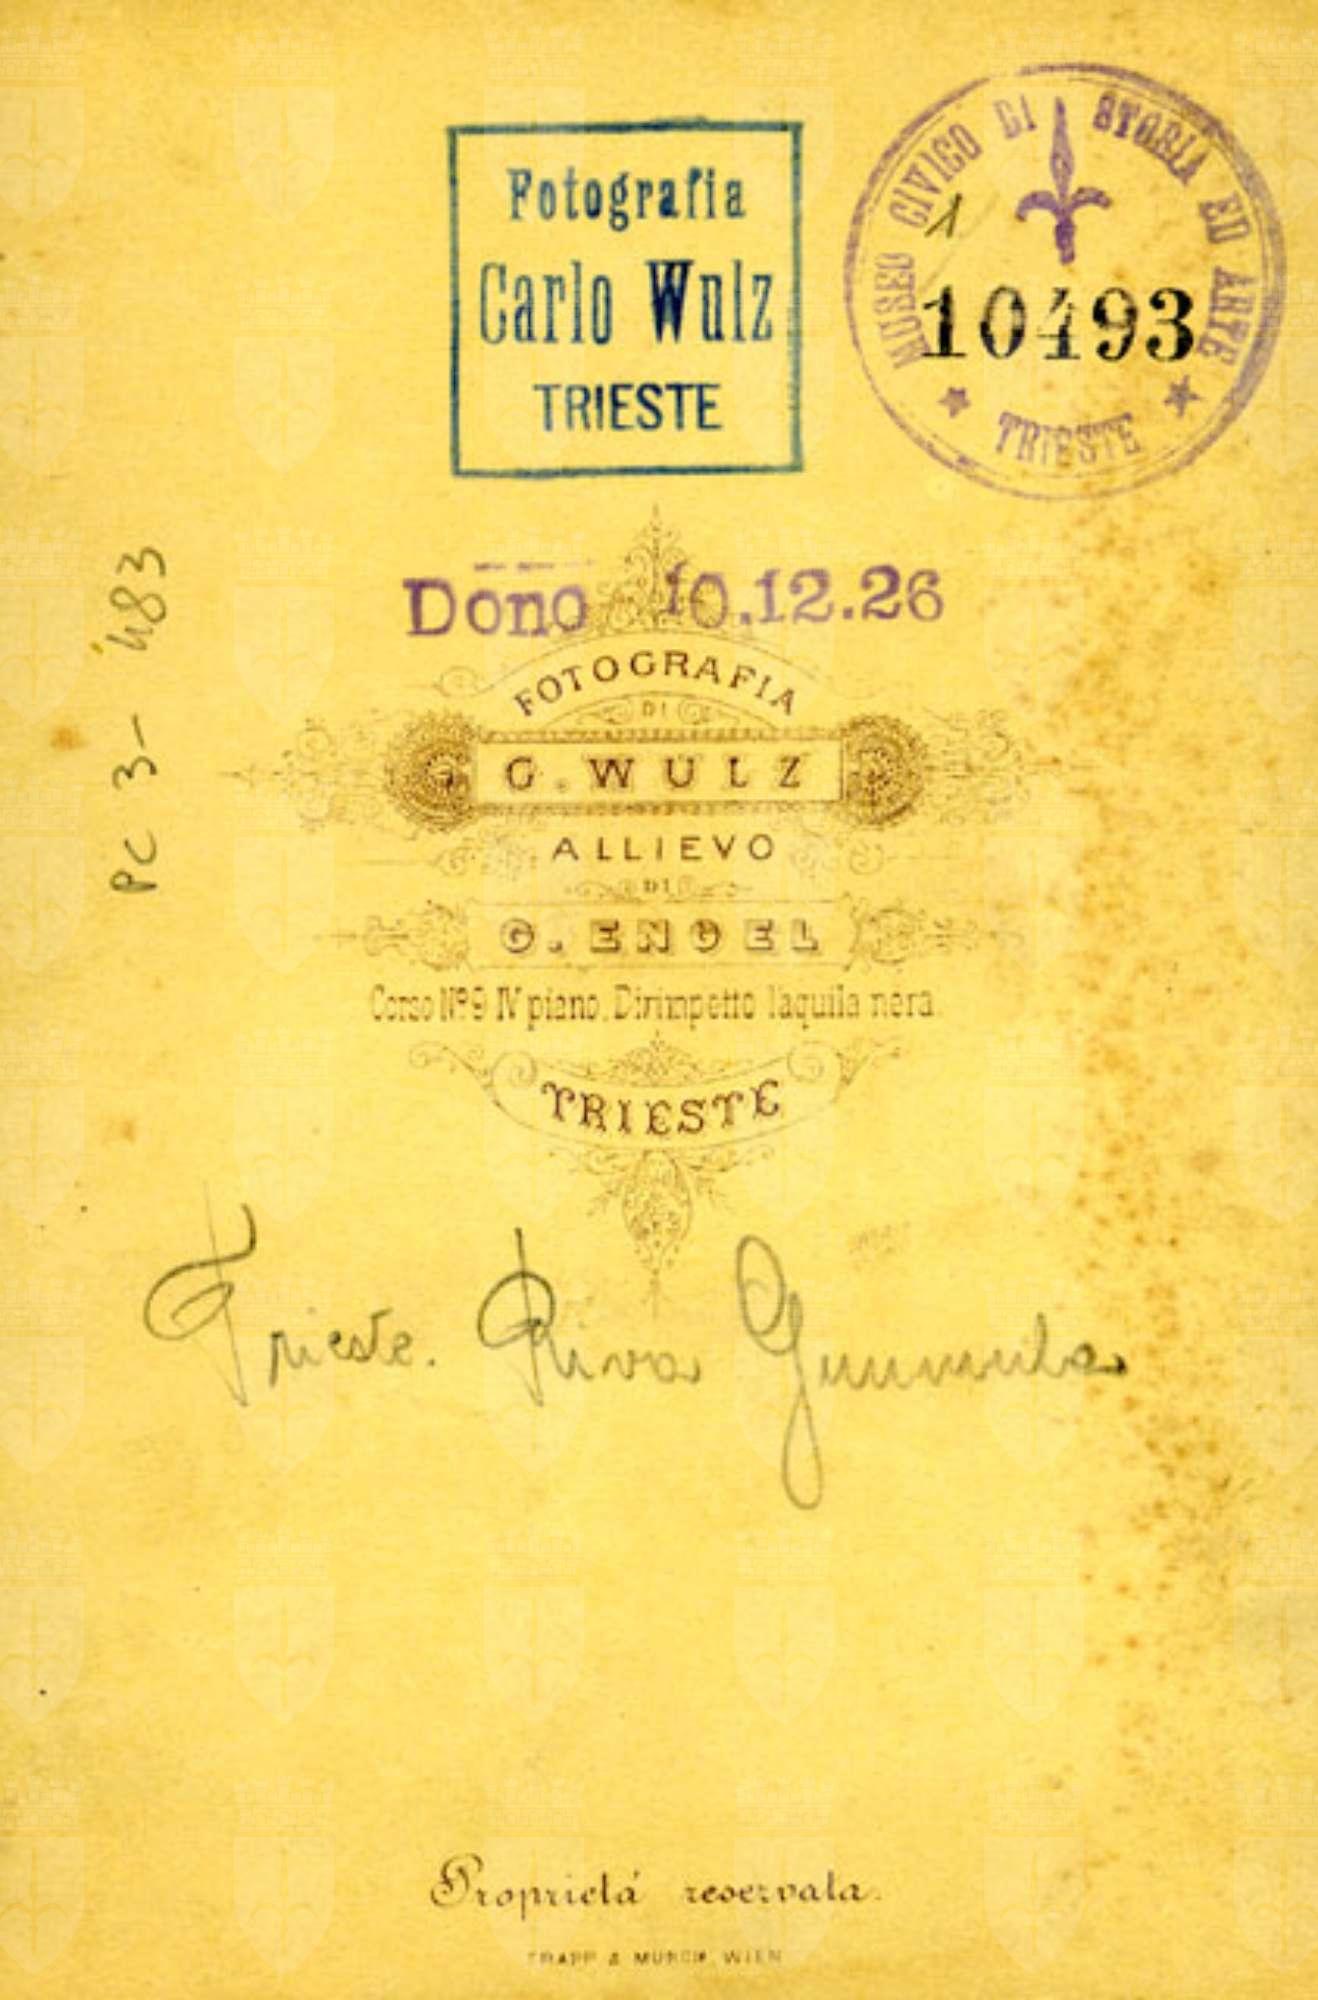 Fotografia
Carlo Wulz
TRIESTE
MUSEO CIVICO DI STORIA ED ARTE
1
10493
TRIESTE
PC 3-483
Dono 10.12.26
FOTOGRAFIA
DI
G. WULZ
ALLIEVO
DI
G. ENGEL
Corso Nº 9 IV piano, Dirimpetto l'aquila nera.
TRIESTE
Trieste. Riva Grumula
Proprietá reservata.
TRAPP & MÜNCH, WIEN